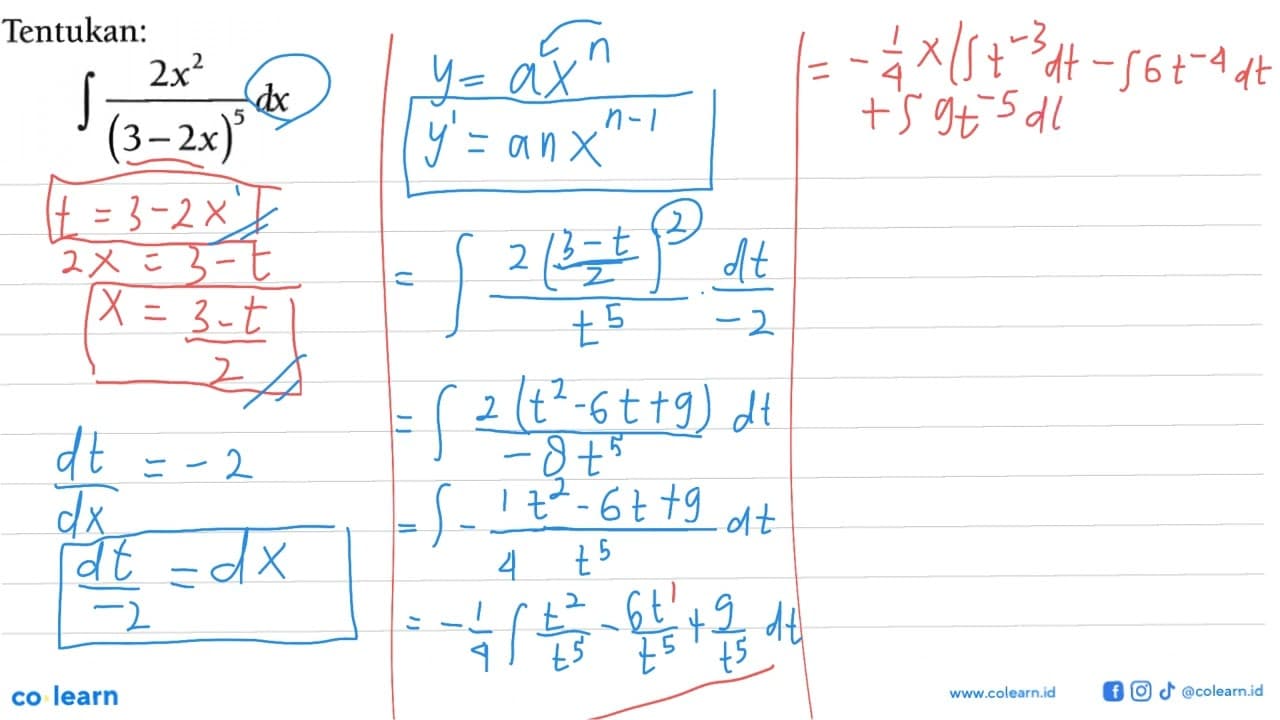 Tentukan:
∫ 2x² / (3 – 2x)⁵ dx
t = 3 - 2x¹
2x = 3 - t
x = (3 - t) / 2
dt / dx = - 2
dt / -2 = dx
y = ax^n
y' = anx^(n-1)
= ∫ 2((3 - t) / 2)² / t⁵ . dt / -2
= ∫ 2(t² - 6t + 9) / -8t⁵ dt
= ∫ - 1/4 (t² - 6t + 9) / t⁵ dt
= - 1/4 ∫ t²/t⁵ - 6t¹/t⁵ + 9/t⁵ dt
= - 1/4 x (∫ t⁻³ dt - ∫ 6t⁻⁴ dt
+ ∫ 9t⁻⁵ dt
co learn
www.colearn.id
@colearn.id